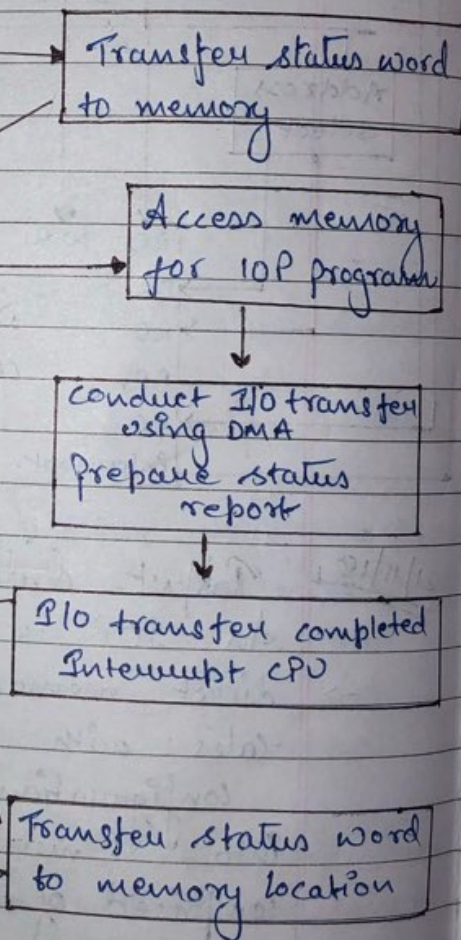 Transfer status word
to memory
Access memory
for IOP program
Conduct I/O transfer
using DMA
Prepare status
report
I/O transfer completed
Interrupt CPU
Transfer status word
to memory location